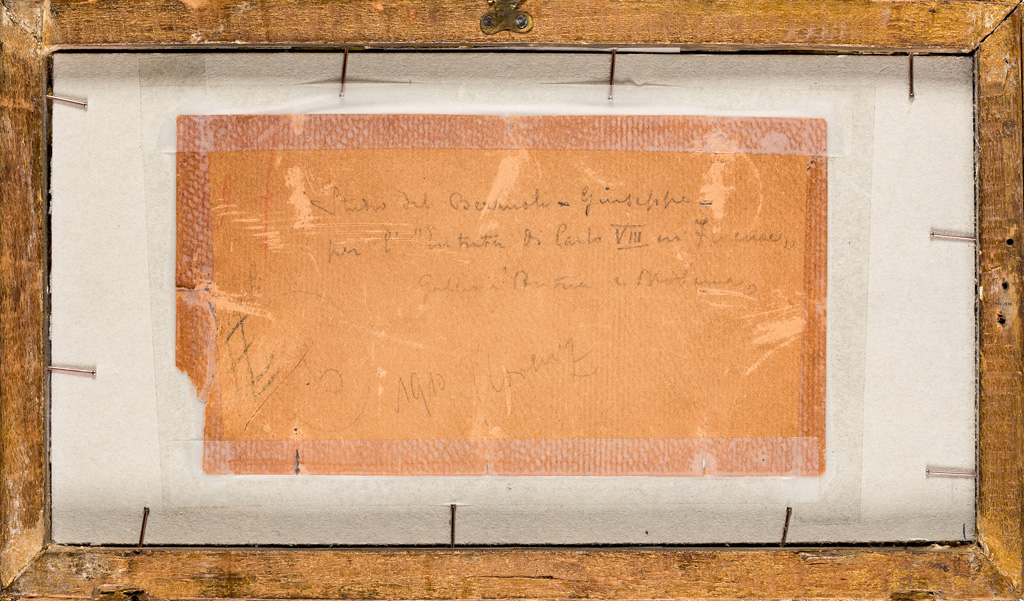 Studio del Bezzuoli - Giuseppe -
per l' "Entrata di Carlo VIII in Firenze„
Galleria Antica e Moderna
1910 Firenze